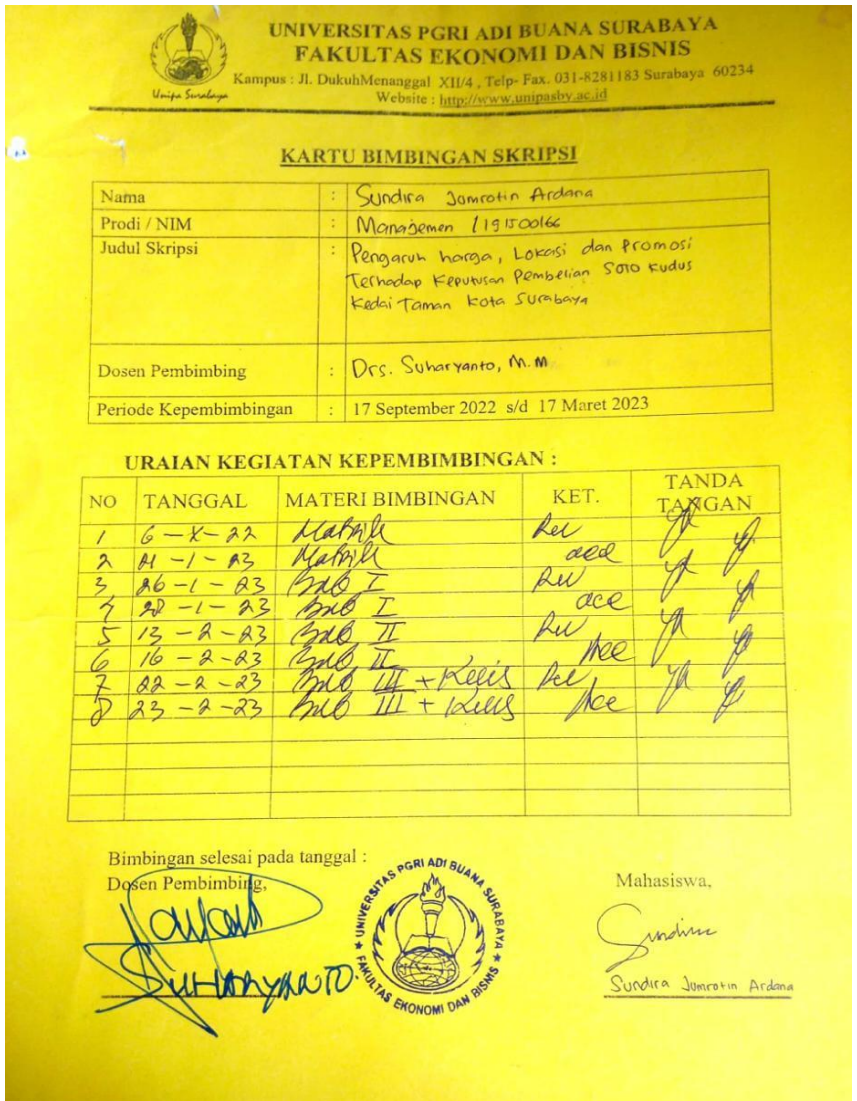 UNIVERSITAS PGRI ADI BUANA SURABAYA
FAKULTAS EKONOMI DAN BISNIS
Kampus : Jl. DukuhMenanggal XII/4 , Telp- Fax. 031-8281183 Surabaya 60234
Website : http://www.unipasby.ac.id
Unipa Surabaya
KARTU BIMBINGAN SKRIPSI
Nama : Sundira Jumrotin Ardana
Prodi / NIM : Manajemen / 191500166
Judul Skripsi : Pengaruh harga, Lokasi dan Promosi
Terhadap Keputusan Pembelian Soto Kudus
Kedai Taman Kota Surabaya
Dosen Pembimbing : Drs. Suharyanto, M.M
Periode Kepembimbingan : 17 September 2022 s/d 17 Maret 2023
URAIAN KEGIATAN KEPEMBIMBINGAN :
NO TANGGAL MATERI BIMBINGAN KET. TANDA TANGAN
1 6 - X - 22 Matrik Rev
2 21 - 1 - 23 Matrik acc
3 26 - 1 - 23 Bab I Rev
4 28 - 1 - 23 Bab I acc
5 13 - 2 - 23 Bab II Rev
6 16 - 2 - 23 Bab II Acc
7 22 - 2 - 23 Bab III + Rev
8 23 - 2 - 23 Bab III + Acc
Bimbingan selesai pada tanggal :
Dosen Pembimbing,
Mahasiswa,
UNIVERSITAS PGRI ADI BUANA SURABAYA
FAKULTAS EKONOMI DAN BISNIS
SUHARYANTO
Sundira
Sundira Jumrotin Ardana